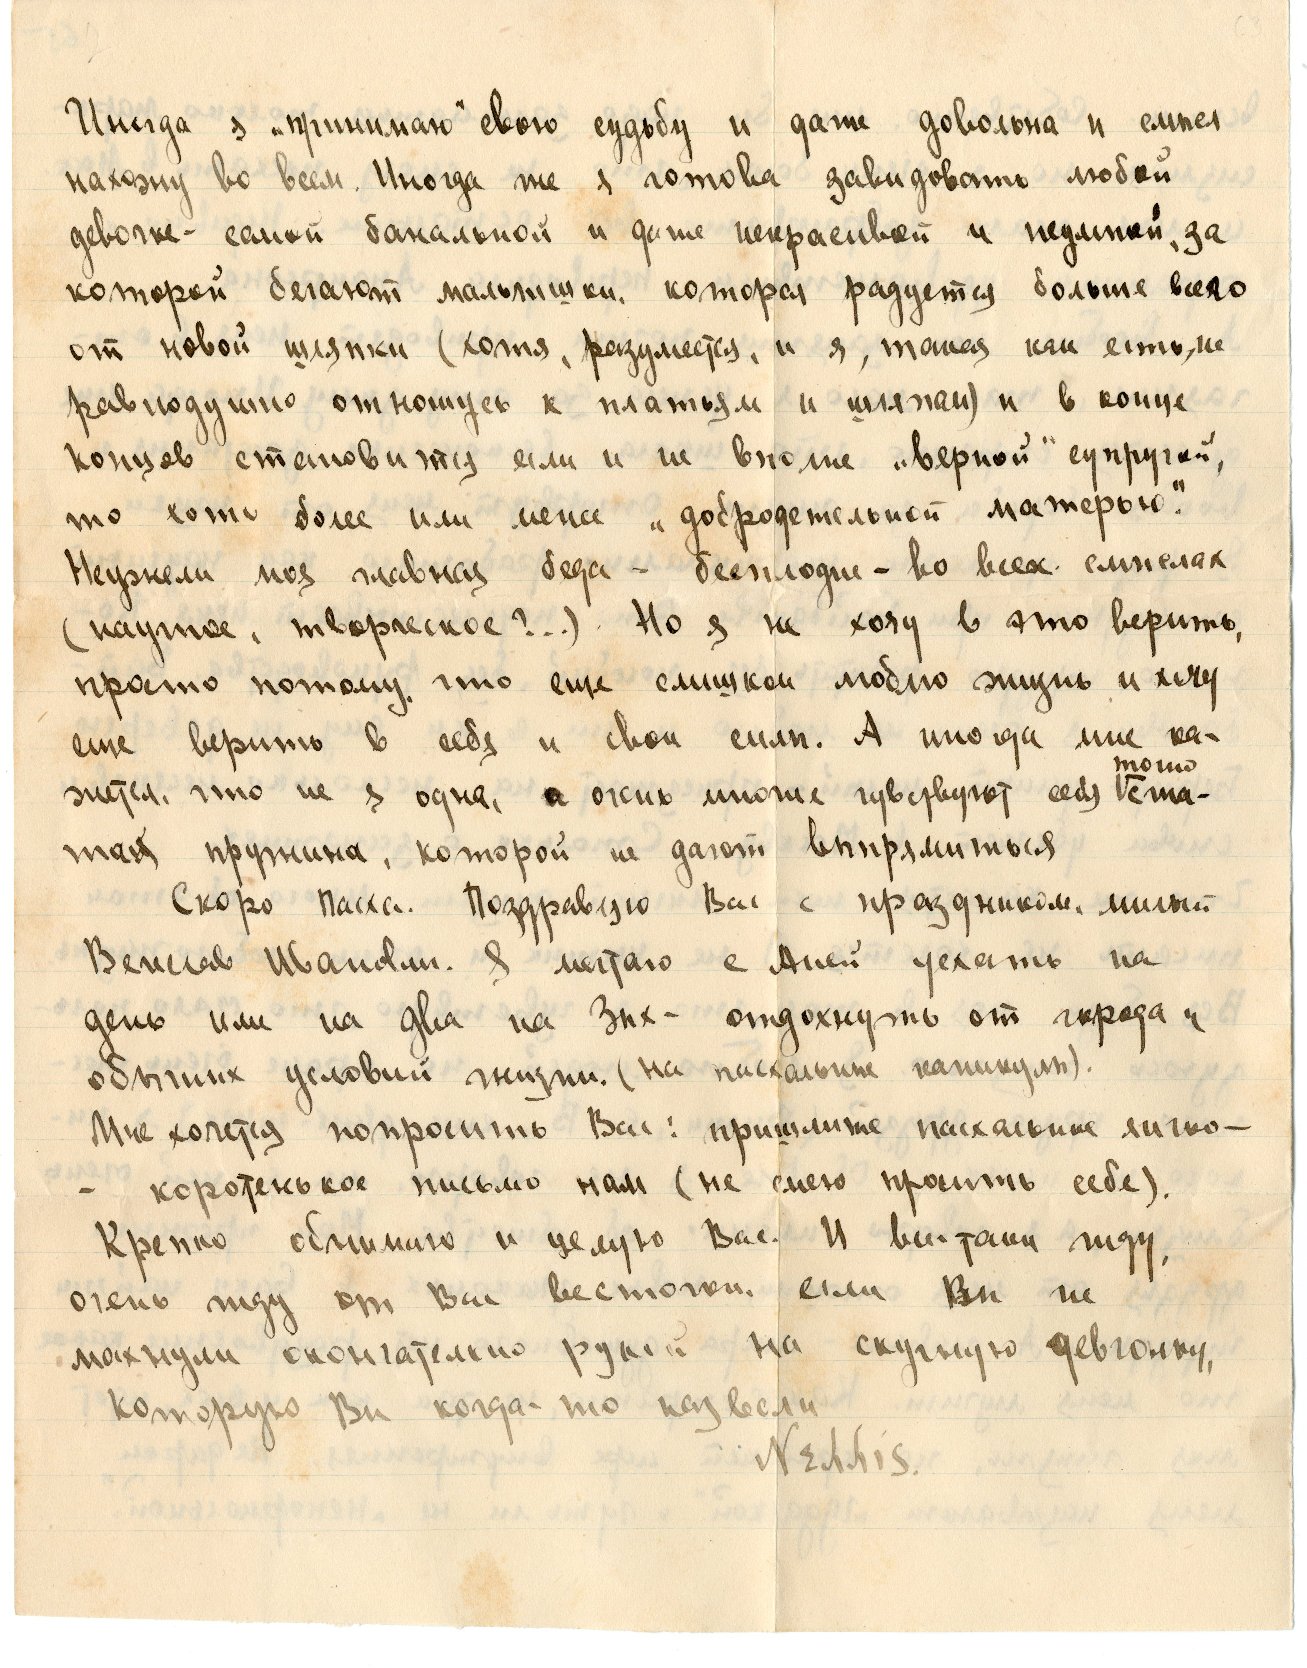 Иногда я „принимаю“ свою судьбу и даже довольна и смысл
нахожу во всем. Иногда же я готова завидовать любой
девочке - самой банальной и даже некрасивой и неумной, за
которой бегают мальчишки, которая радуется больше всего
от новой шляпки (хотя, разумеется, и я, такая как есть, не
равнодушно отношусь к платьям и шляпам) и в конце
концов становится если и не вполне „верной“ супругой,
то хоть более или менее „добродетельной матерью“.
Неужели моя главная беда - бесплодие - во всех смыслах
(научное, творческое?...) Но я не хочу в это верить,
просто потому, что еще слишком люблю жизнь и хочу
еще верить в себя и свои силы. А иногда мне ка-
жется, что не я одна, а очень многие чувствуют себя точно сжа-
тая пружина, которой не дают выпрямиться
Скоро Пасха. Поздравляю Вас с праздником, милый
Вечеслав Иванович. Я мечтаю с Аней уехать на
день или на два на Зых - отдохнуть от города и
обычных условий жизни. (на пасхальные каникулы).
Мне хочется попросить Вас: пришлите пасхальное яичко -
- коротенькое письмо нам (не смею просить себе).
Крепко обнимаю и целую Вас. И все-таки жду,
очень жду от Вас весточки, если Вы не
махнули окончательно рукой на скучную девчонку,
которую Вы когда-то назвали
Nελλις.